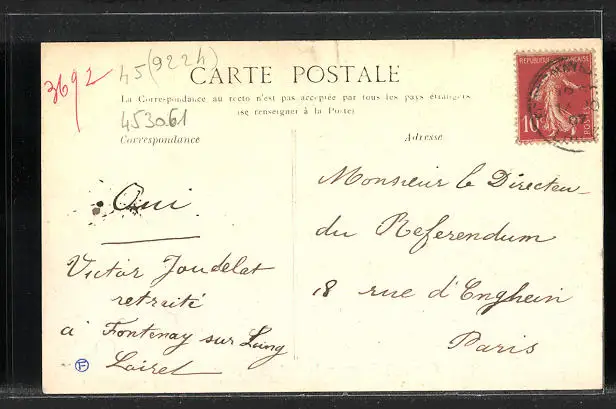 3692
45 (9224)
CARTE POSTALE
La Correspondance au recto n'est pas acceptée par tous les pays étrangers
(se renseigner à la Poste)
453061
Correspondance
Adresse
REPUBLIQUE FRANÇAISE
10
POSTES
Oui
Victor Joudelat
retraité
à Fontenay sur Loing
Loiret
Monsieur le Directeur
du Referendum
18 rue d'Enghein
Paris
F